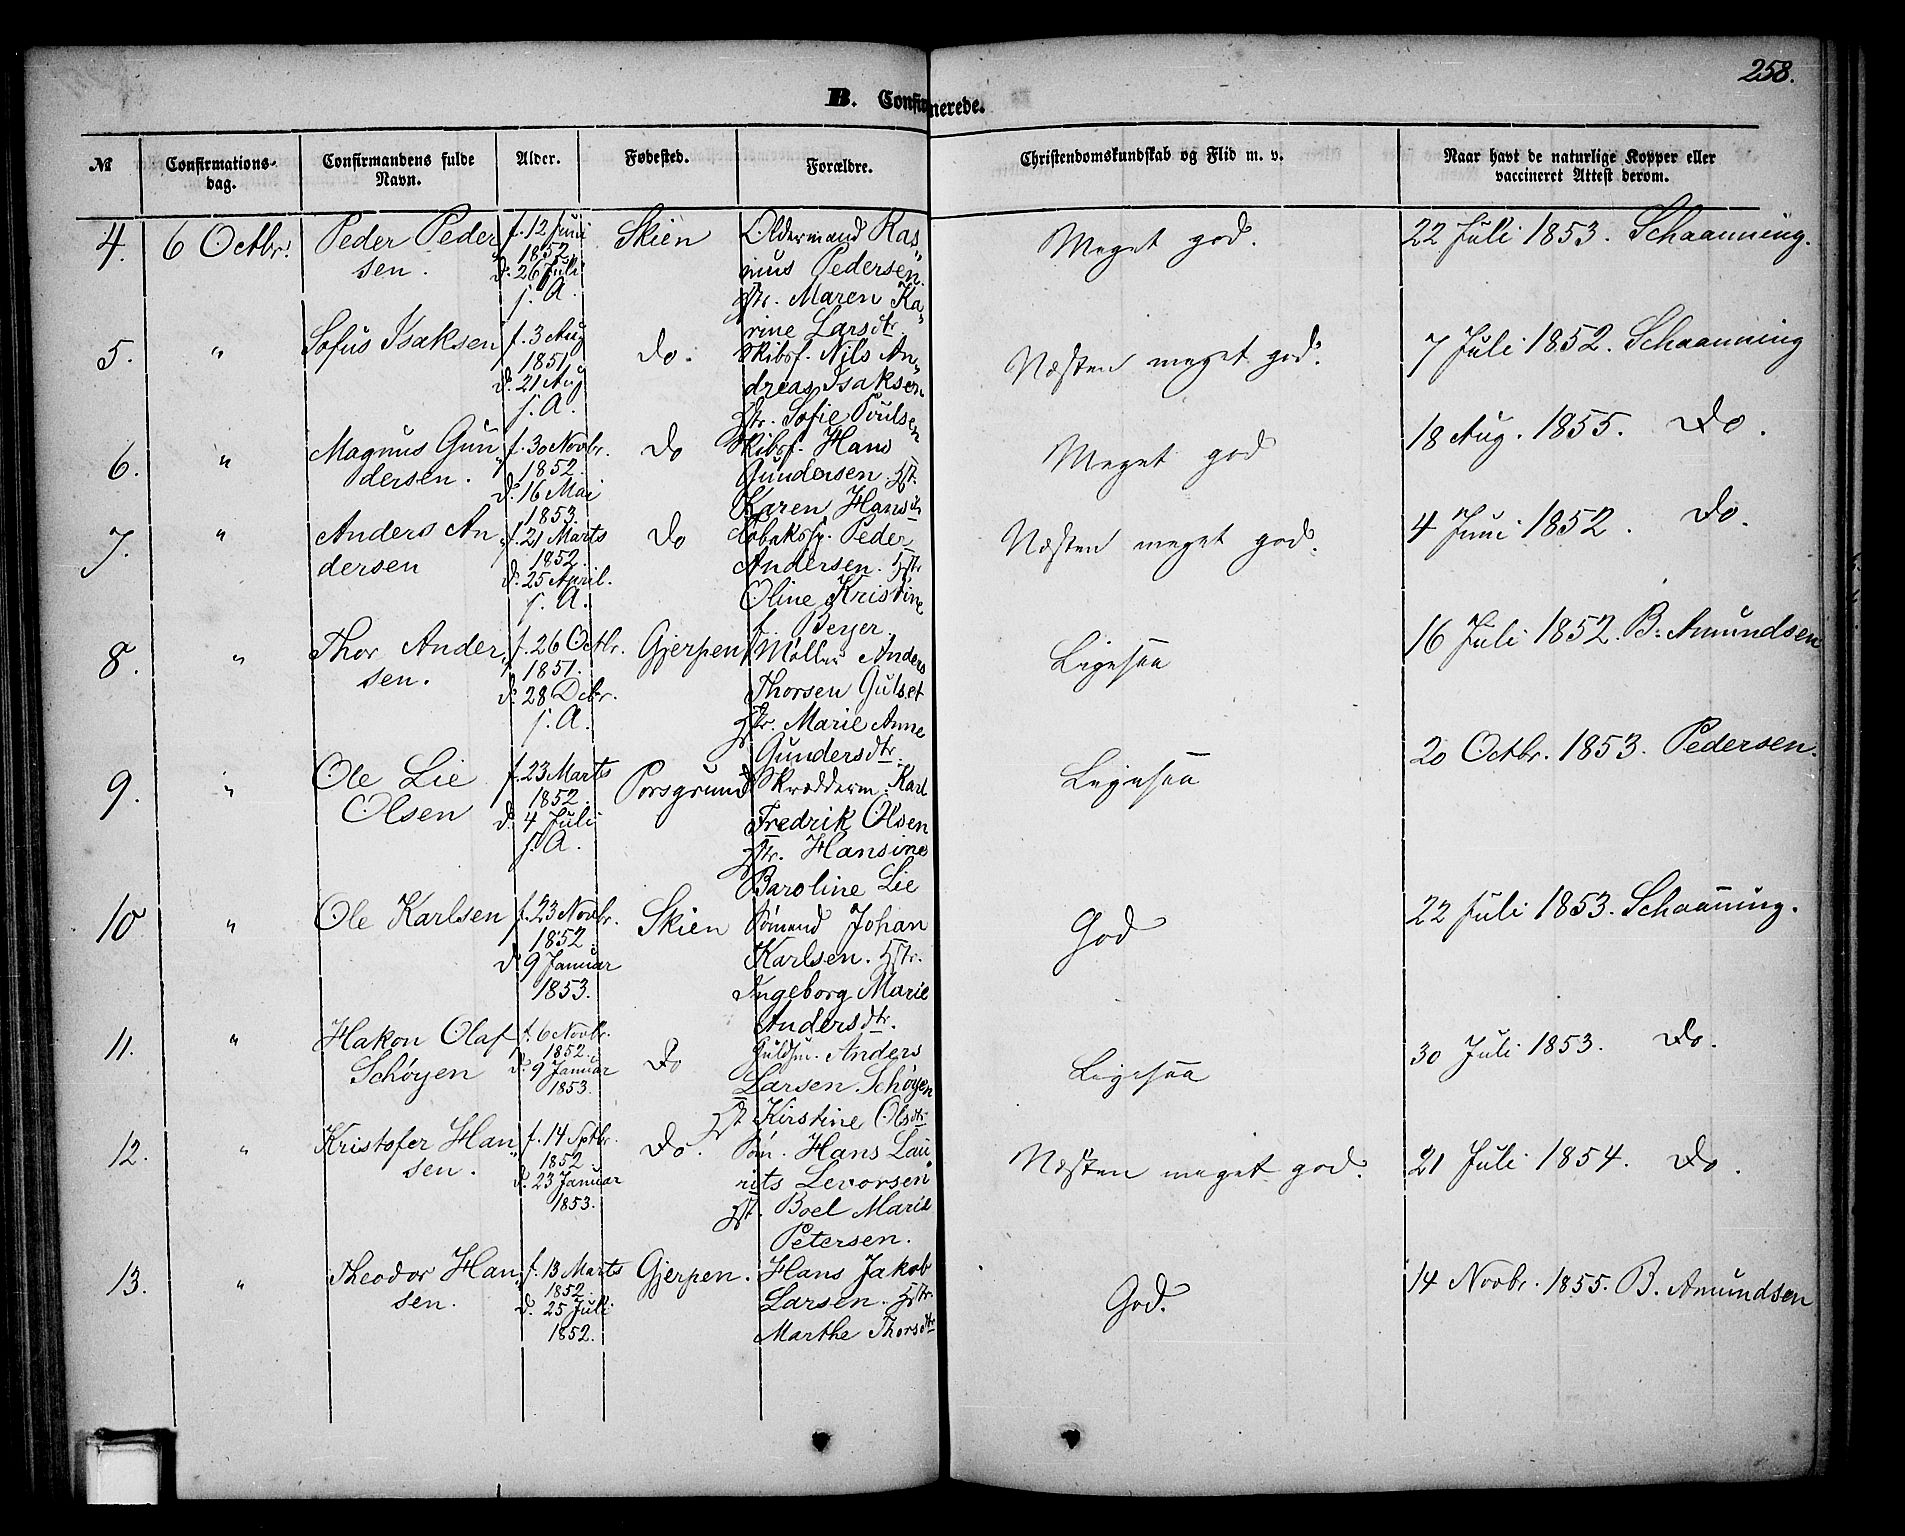 258.
B. Confirmerede.
№
Confirmations-
dag.
Confirmandens fulde
Navn.
Alder.
Fødested.
Forældre.
Christendomskundskab og Flid m. v.
Naar havt de naturlige Kopper eller
vaccineret Attest derom.
4. 6 Octbr. Peder Peder„ f. 12 Juni Skien Oldermand Ras„ Meget god. 22 Juli 1853. Schaanning.
sen. 1852. mus Pedersen.
d. 26 Juli Hstr. Maren Ka„
s. A. rine Larsdtr.
5. „ Sofus Isaksen f. 3 Aug Do. Skibsf. Nils An„ Næsten meget god. 7 Juli 1852. Schaanning
1851. dreas Isaksen
d. 21 Aug Hstr. Sofie Poulsen
s. A.
6. „ Magnus Gun„ f. 30 Novbr. Do Skibsf. Hans Meget god 18 Aug. 1855. Do.
dersen. 1852. Gundersen. Hst.
d. 16 Mai Karen Hansdtr
1853.
7. „ Anders An„ f. 21 Marts Do Tobakssp. Peder Næsten meget god. 4 Juni 1852. Do.
dersen 1852. Andersen. Hstr
d. 25 April. Oline Kristine
s. A. f. Beyer.
8. „ Thor Ander„ f. 26 Octbr. Gjerpen Møller Anders Ligesaa 16 Juli 1852. B. Amundsen
sen. 1851. Thorsen Gulset
d. 28 Dcbr. Hstr. Marie Anne
s. A. Gundersdtr.
9. „ Ole Lie f. 23 Marts Porsgrund Skrædderm. Karl Ligesaa 20 Octbr. 1853. Pedersen.
Olsen 1852. Fredrik Olsen
d. 4 Juli Hstr. Hansine
s. A. Baroline Lie
10 „ Ole Karlsen f. 23 Novbr. Skien Sømand Johan God 22 Juli 1853. Schaaning.
1852. Karlsen. Hstr.
d. 9 Januar Ingeborg Marie
1853. Andersdtr.
11. „ Hakon Olaf f. 6 Novbr. Do Guldsm. Anders Ligesaa 30 Juli 1853. Do.
Schøyen 1852. Larsen Schøyen
d. 9 Januar Hst Kirstine Olsdtr
1853.
12. „ Kristofer Han„ f. 14 Sptbr. Do. Søm. Hans Lau„ Næsten meget god. 21 Juli 1854. Do.
sen. 1852 rits Levorsen
d. 23 Januar Hst. Boel Marie
1853. Petersen.
13. „ Theodor Han„ f. 13 Marts Gjerpen. Hans Jakob God. 14 Novbr. 1855. B. Amundsen
sen. 1852. Larsen. Hstr.
d. 25 Juli Marthe Thorsdtr
1852.